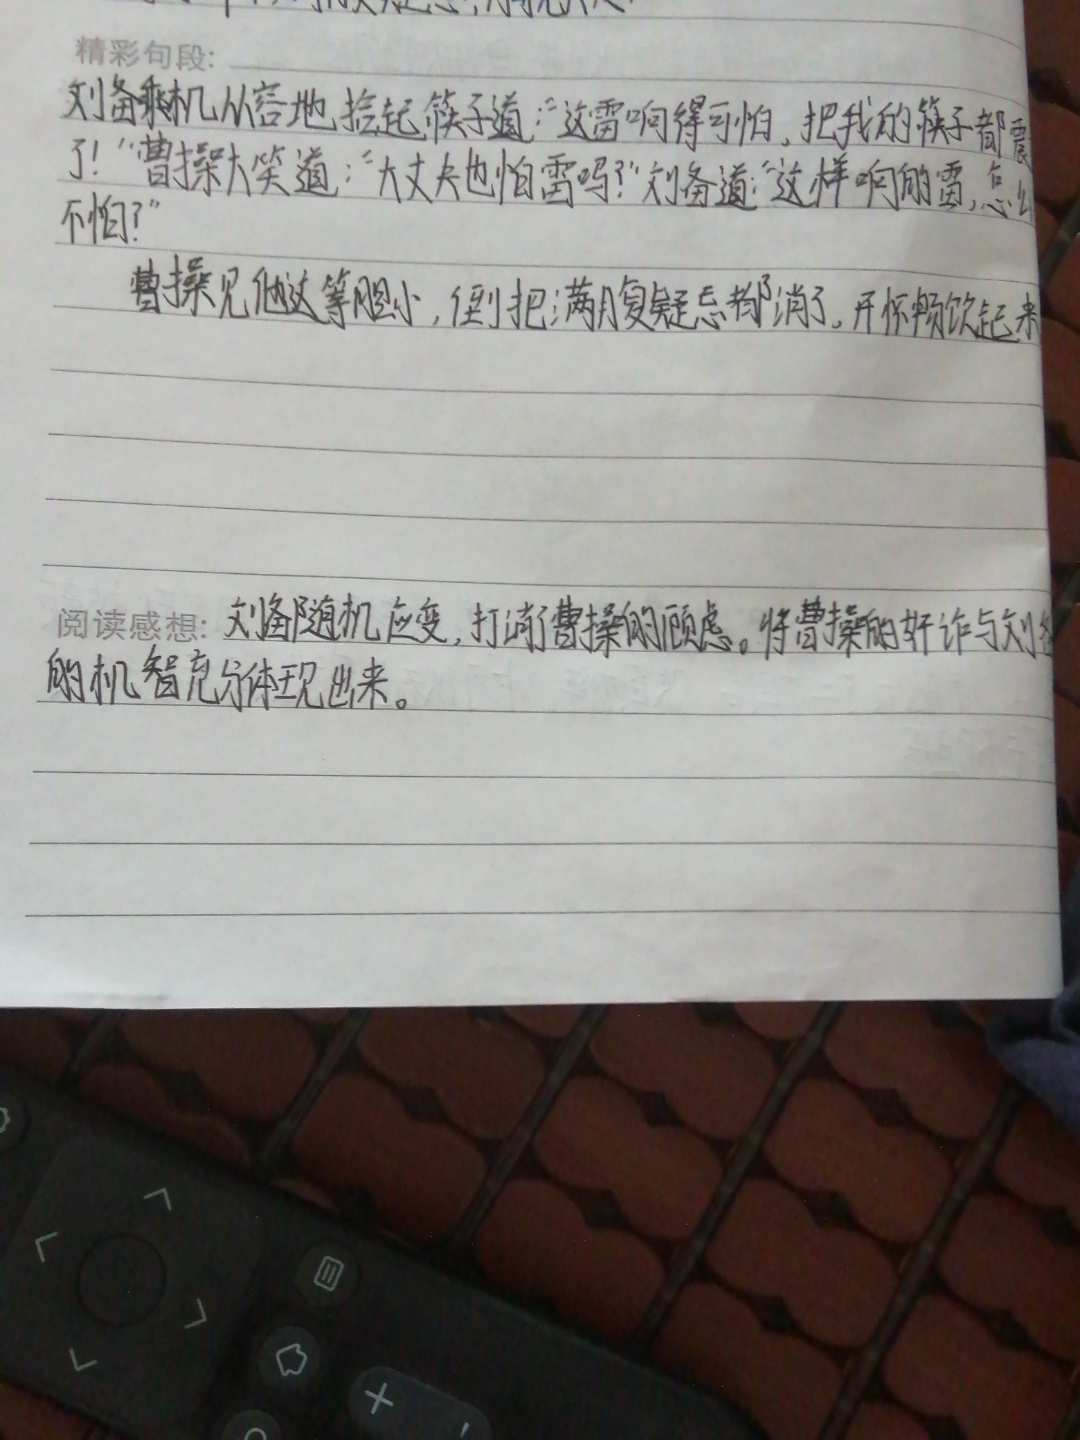 精彩句段:
刘备乘机从容地捡起筷子道:"这雷响得可怕,把我的筷子都震
了!"曹操大笑道:"大丈夫也怕雷吗?"刘备道:"这样响的雷,怎么
不怕?"
曹操见他这等胆小,倒把满腹疑忌都消了。开怀畅饮起来
阅读感想: 刘备随机应变,打消了曹操的顾虑。将曹操的奸诈与刘备
的机智充分体现出来。